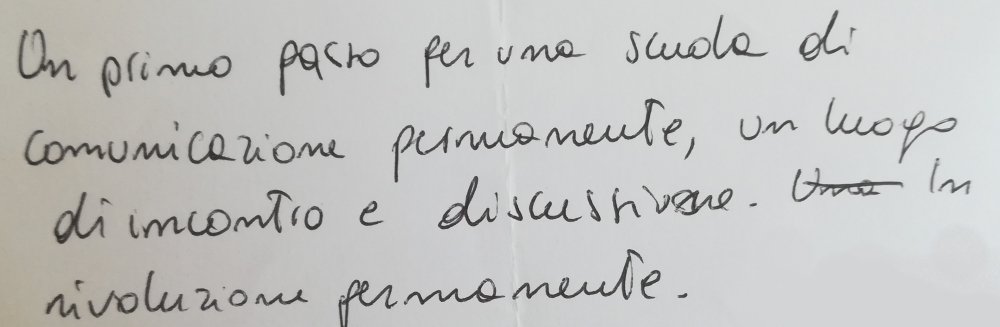 Un primo passo per una scuola di
comunicazione permanente, un luogo
di incontro e discussione. Una In
rivoluzione permanente.